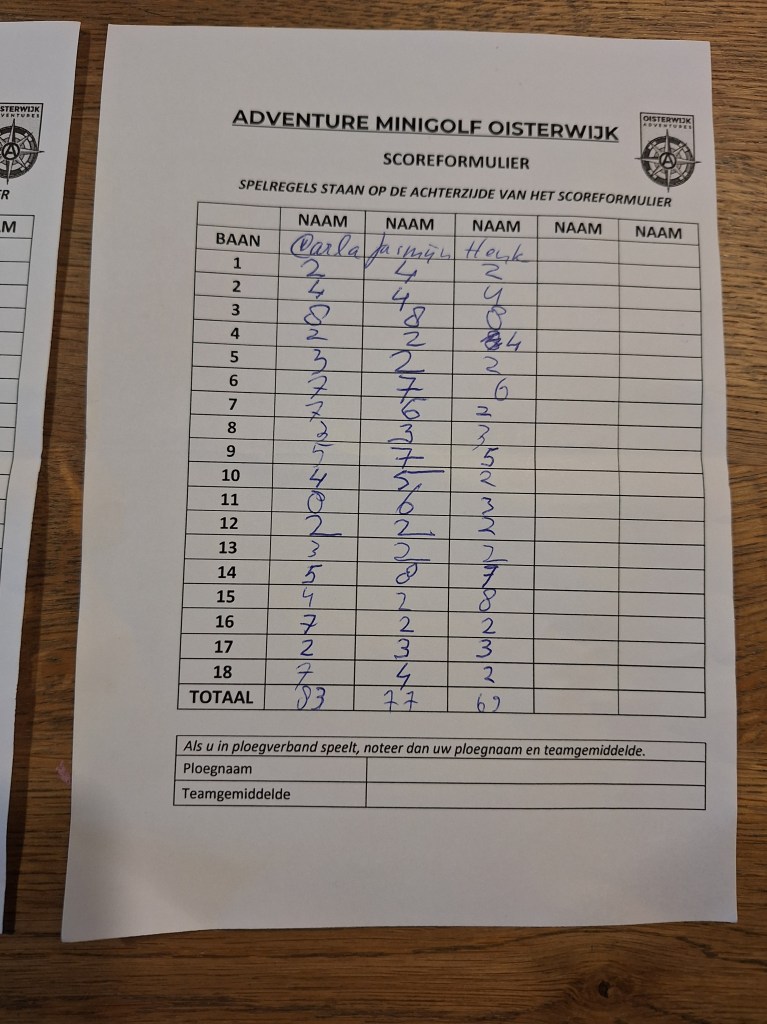 STERWIJK
VENTURES
A
ER
M
OISTERWIJK
ADVENTURES
A
ADVENTURE MINIGOLF OISTERWIJK
SCOREFORMULIER
SPELREGELS STAAN OP DE ACHTERZIJDE VAN HET SCOREFORMULIER
NAAM NAAM NAAM NAAM NAAM
BAAN Carla Jasmijn Henk
1 2 4 2
2 4 4 4
3 8 8 8
4 2 2 4
5 3 2 2
6 7 7 6
7 7 6 2
8 2 3 3
9 5 7 5
10 4 5 2
11 8 6 3
12 2 2 2
13 3 2 2
14 5 8 7
15 4 2 8
16 7 2 2
17 2 3 3
18 7 4 2
TOTAAL 83 77 69
Als u in ploegverband speelt, noteer dan uw ploegnaam en teamgemiddelde.
Ploegnaam
Teamgemiddelde